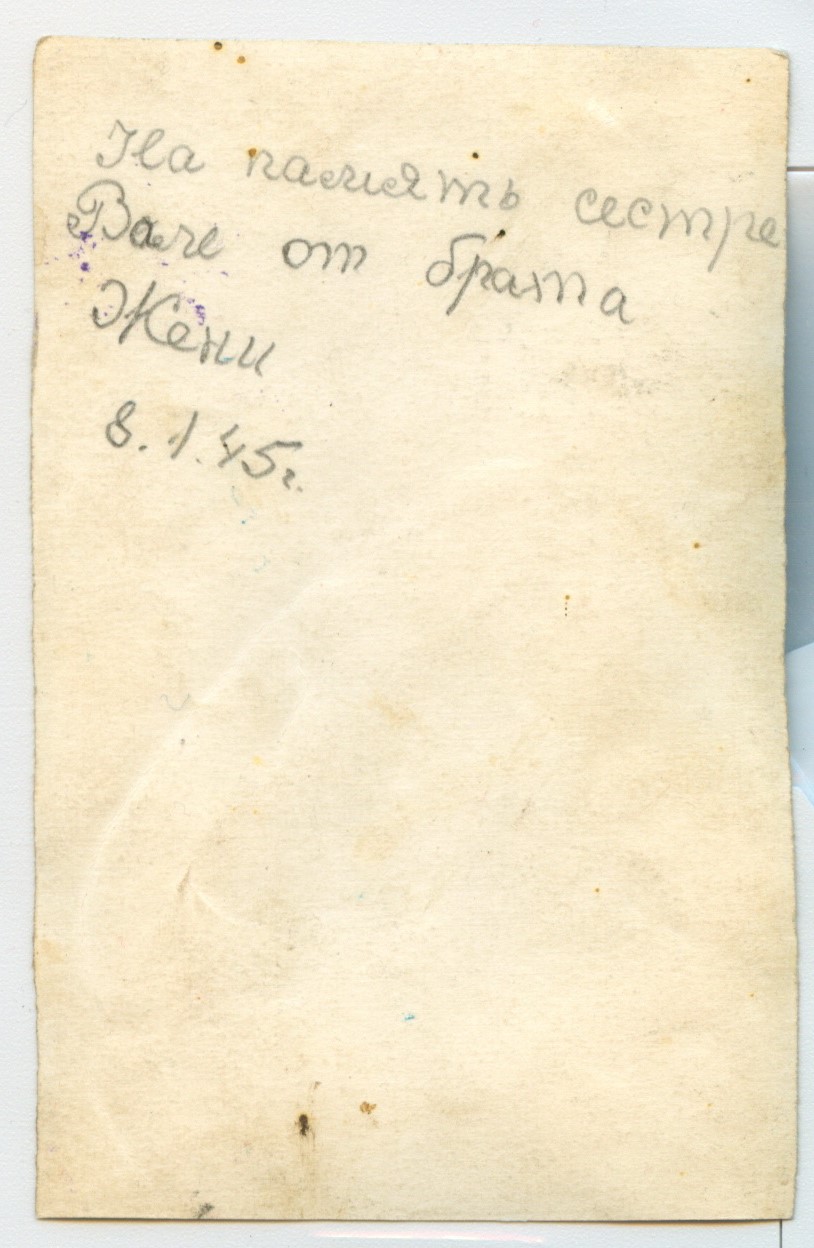 На память сестре
Вале от брата
Жени
8.1.45г.